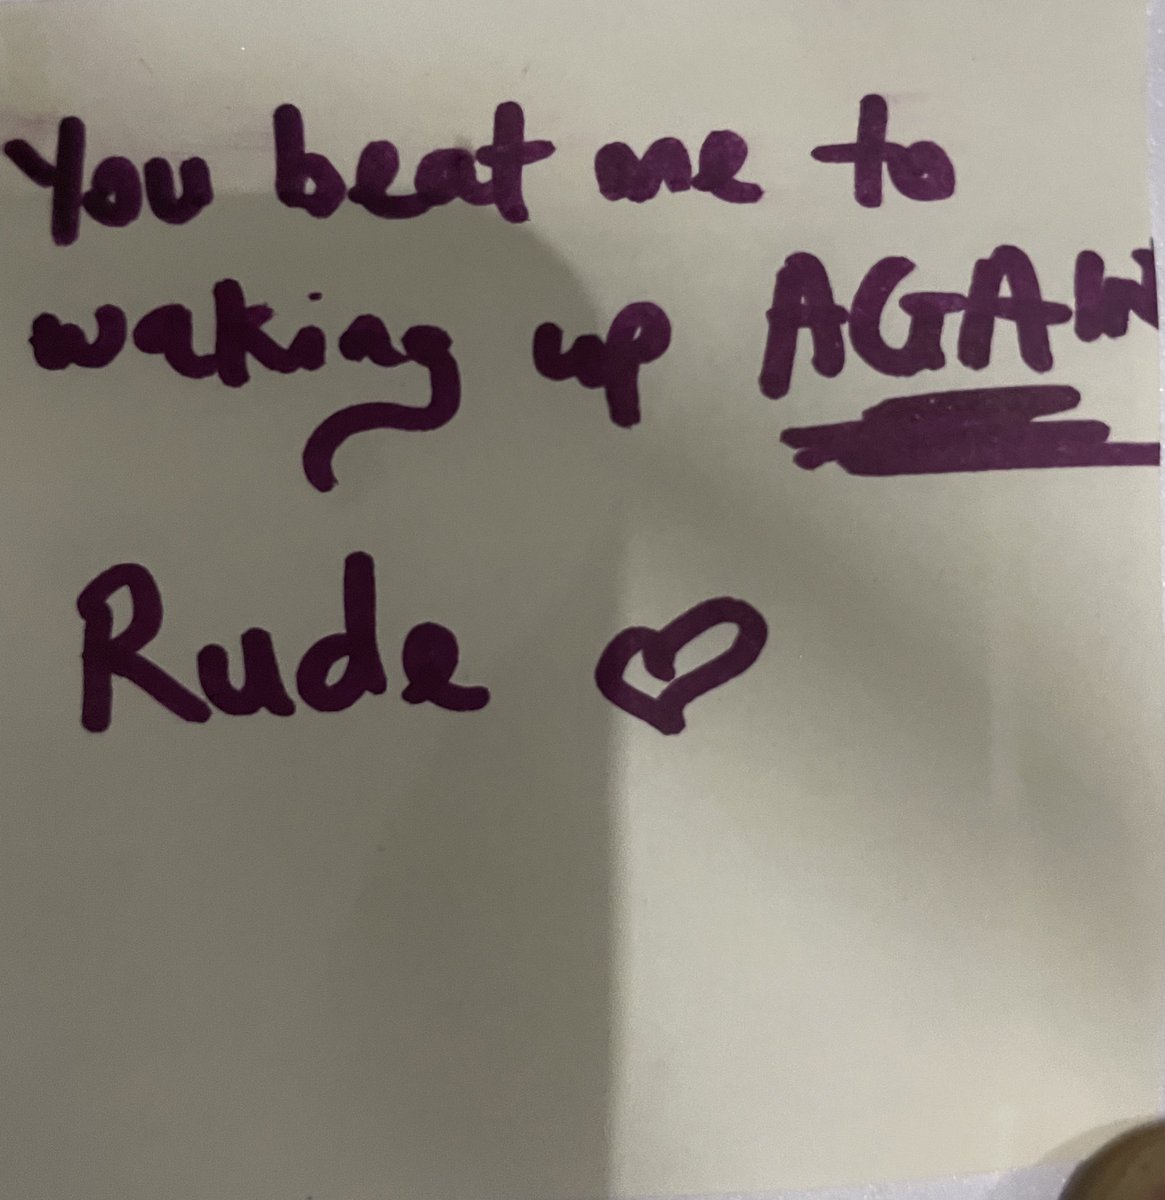 You beat me to
waking up AGAIN
Rude ♡